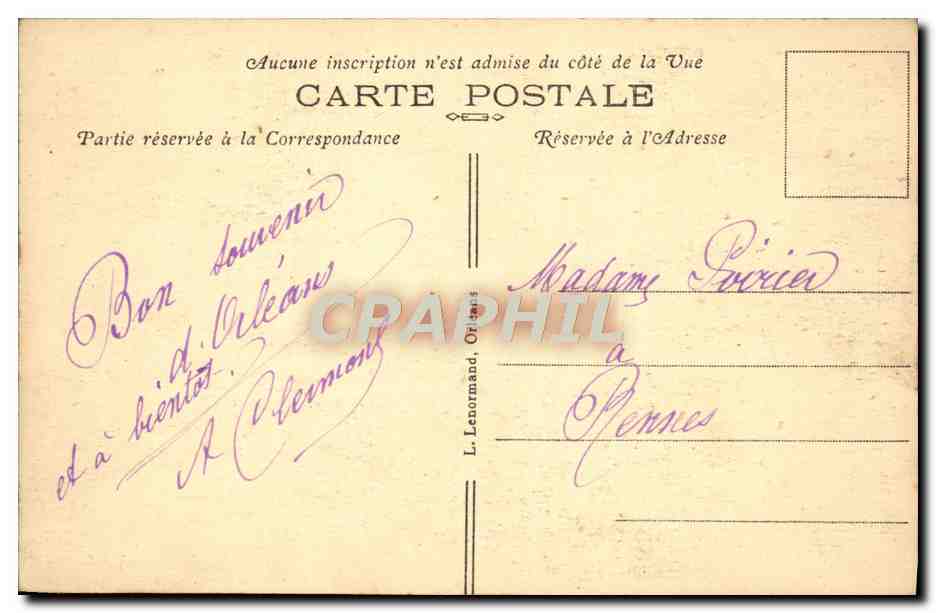 Aucune inscription n'est admise du côté de la Vue
CARTE POSTALE
Partie réservée à la Correspondance
Réservée à l'Adresse
Bon souvenir
d'Orléans
et à bientôt.
A Clermont
L. Lenormand, Orléans
Madame Poirier
à
Rennes
CPAPHIL